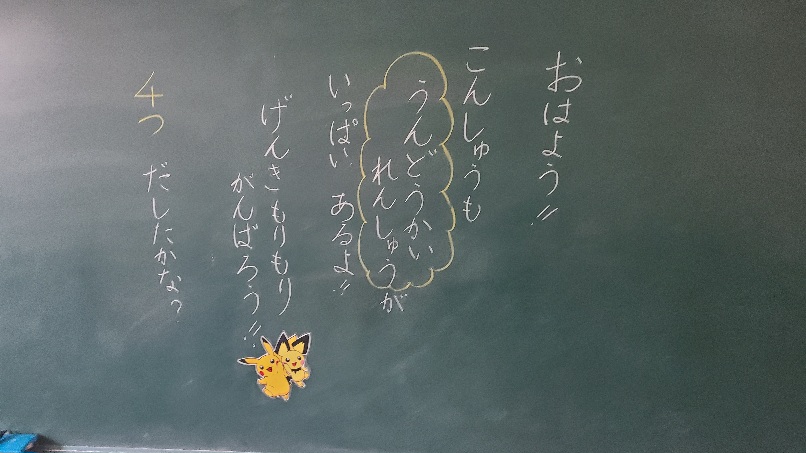 おはよう!!
こんしゅうも
うんどうかい
れんしゅうが
いっぱい あるよ!!
げんきもりもり
がんばろう!!
4つ だしたかな?